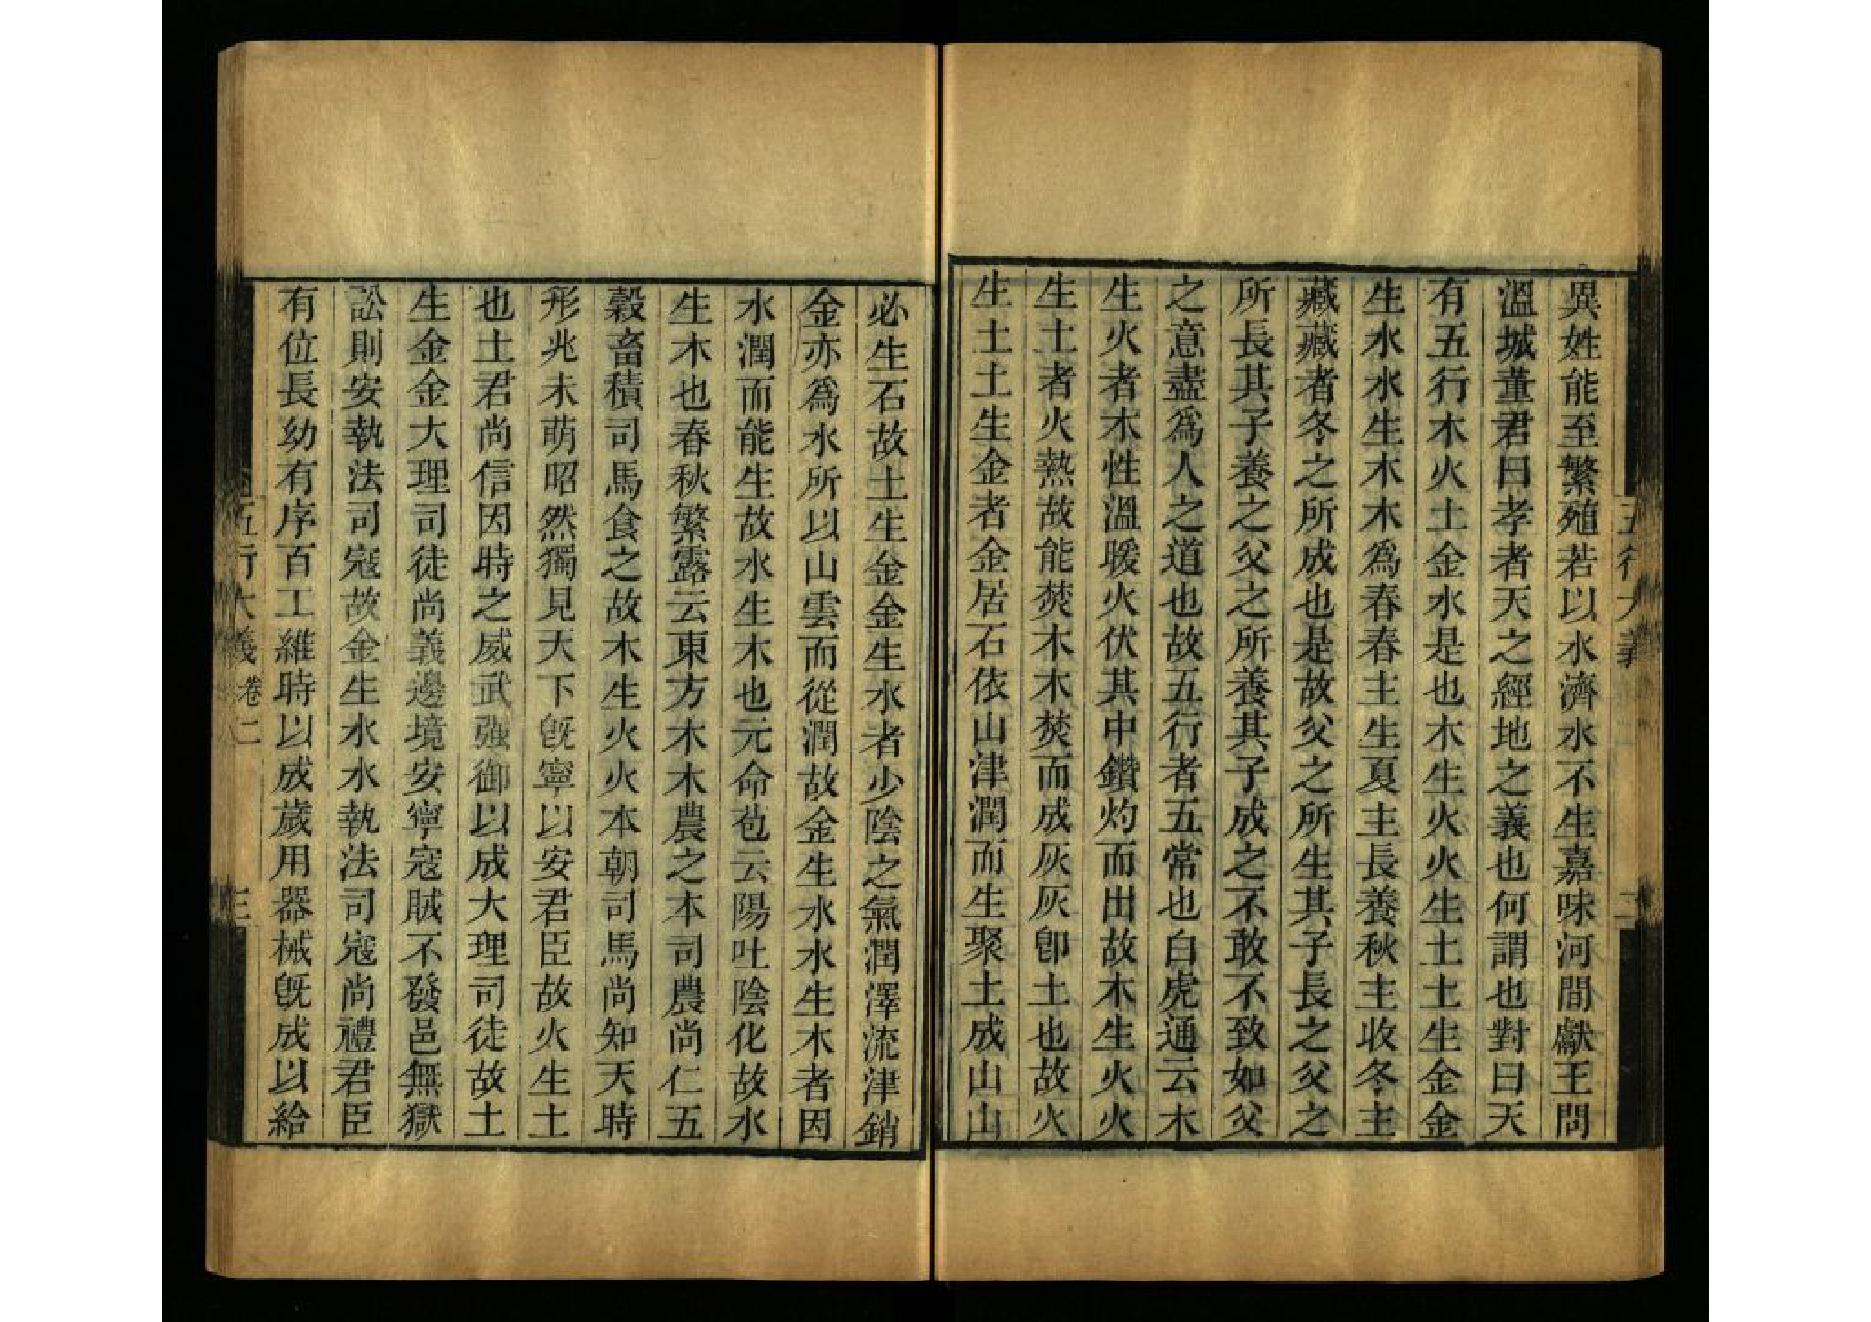 異姓能至繁殖若以水濟水不生嘉味河間獻王問
溫城董君曰孝者天之經地之義也何謂也對曰天
有五行木火土金水是也木生火火生土土生金金
生水水生木木為春春主生夏主長養秋主收冬主
藏藏者冬之所成也是故父之所生其子長之父之
所長其子養之父之所養其子成之不敢不致如父
之意盡為人之道也故五行者五常也白虎通云木
生火者木性溫暖火伏其中鑽灼而出故木生火火
生土者火熱故能焚木木焚而成灰灰卽土也故火
生土土生金者金居石依山津潤而生聚土成山山
五行大義
二
必生石故土生金金生水者少陰之氣潤澤流津銷
金亦為水所以山雲而從潤故金生水水生木者因
水潤而能生故水生木也元命苞云陽吐陰化故水
生木也春秋繁露云東方木木農之本司農尚仁五
穀畜積司馬食之故木生火火本朝司馬尚知天時
形兆未萌昭然獨見天下旣寧以安君臣故火生土
也土君尚信因時之威武强御以成大理司徒故土
生金金大理司徒尚義邊境安寧寇賊不發邑無獄
訟則安執法司寇故金生水水執法司寇尚禮君臣
有位長幼有序百工維時以成歲用器械旣成以給
五行大義 卷二
三